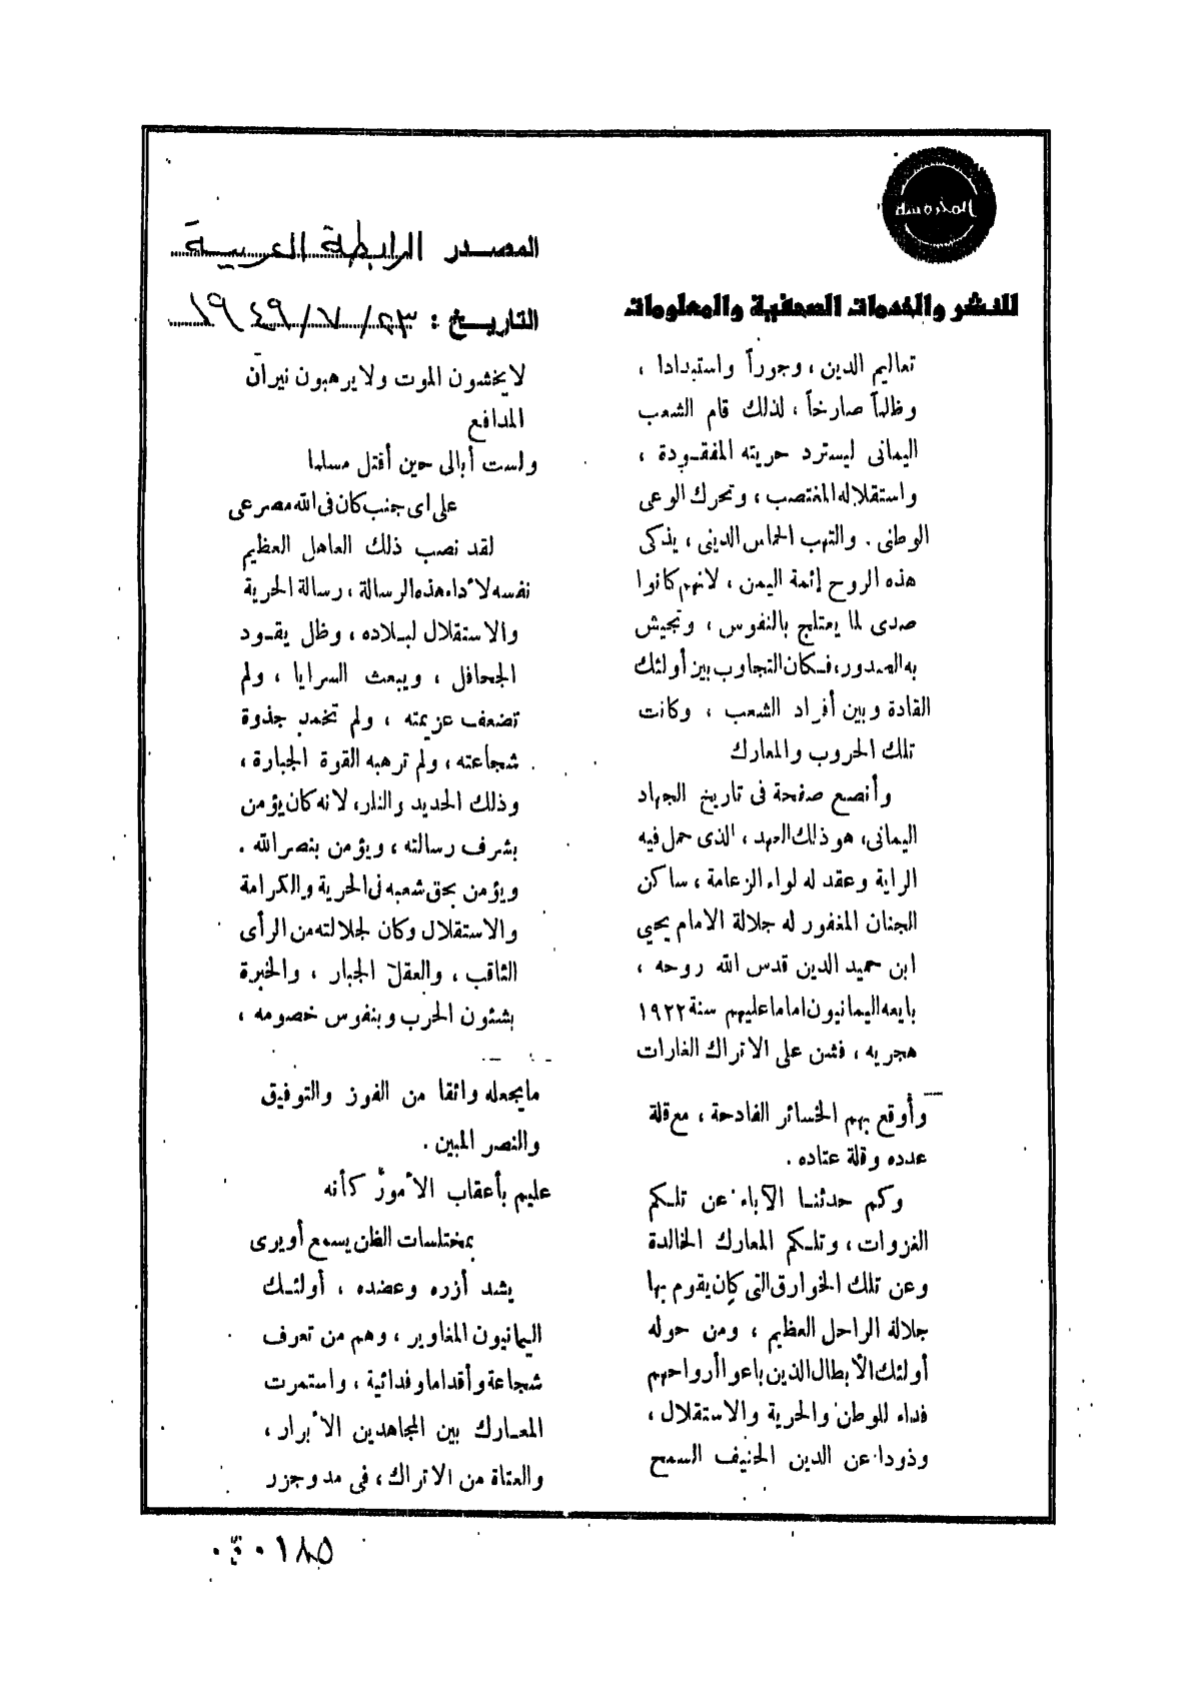 المحروسة
للنشر والخدمات الصحفية والمعلومات
المصدر الرابطة العربية
التاريخ : ٢٣/٧/١٩٤٩
تعاليم الدين ، وجوراً واستبدادا ،
وظلماً صارخاً ، لذلك قام الشعب
اليمانى ليسترد حريته المفقودة ،
واستقلاله المغتصب ، وتحرك الوعى
الوطنى . والتهب الحماس الدينى ، يذكى
هذه الروح إئمة اليمن ، لانهم كانوا
صدى لما يعتلج بالنفوس ، وتجيش
به الصدور، فكان التجاوب بين أولئك
القادة وبين أفراد الشعب ، وكانت
تلك الحروب والمعارك
وأنصع صفحة فى تاريخ الجهاد
اليمانى، هو ذلك العهد ، الذى حمل فيه
الراية وعقد له لواء الزعامة ، ساكن
الجنان المغفور له جلالة الامام يحيي
ابن حميد الدين قدس الله روحه ،
بايعه اليمانيون اماما عليهم سنة ١٩٢٢
هجريه ، فشن على الاتراك الغارات
وأوقع بهم الخسائر الفادحة ، مع قلة
عدده وقلة عتاده .
وكم حدثنا الآباء عن تلكم
الغزوات ، وتلكم المعارك الخالدة
وعن تلك الخوارق التى كان يقوم بها
جلالة الراحل العظيم ، ومن حوله
أولئك الأبطال الذين باعوا أرواحهم
فداء للوطن والحرية والاستقلال ،
وذودا عن الدين الحنيف السمح
لا يخشون الموت ولا يرهبون نيران
المدافع
ولست أبالى حين أقتل مسلما
على اى جنب كان فى الله مصرعى
لقد نصب ذلك العاهل العظيم
نفسه لأداء هذه الرسالة ، رسالة الحرية
والاستقلال لبلاده ، وظل يقود
الجحافل ، ويبعث السرايا ، ولم
تضعف عزيمته ، ولم تخمد جذوة
شجاعته ، ولم ترهبه القوة الجبارة ،
وذلك الحديد والنار، لانه كان يؤمن
بشرف رسالته ، ويؤمن بنصر الله .
ويؤمن بحق شعبه فى الحرية والكرامة
والاستقلال وكان لجلالته من الرأى
الثاقب ، والعقل الجبار ، والخبرة
بشئون الحرب وبنفوس خصومه ،
مايجعله واثقا من الفوز والتوفيق
والنصر المبين .
عليم بأعقاب الأمور كأنه
بمختلسات الظن يسمع أويرى
يشد أزره وعضده ، أولئك
اليمانيون المغاوير ، وهم من تعرف
شجاعة وأقداما وفدائية ، واستمرت
المعارك بين المجاهدين الأبرار ،
والعتاة من الاتراك ، فى مد وجزر